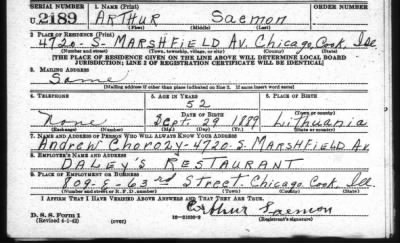 SERIAL NUMBER 1. NAME (Print)
U2189 ARTHUR Saemon
(First) (Middle) (Last)
2. PLACE OF RESIDENCE (Print)
4720-S-MARSHFIELD Av. Chicago, Cook, Ill.
(Number and street) (Town, township, village, or city) (County) (State)
[THE PLACE OF RESIDENCE GIVEN ON THE LINE ABOVE WILL DETERMINE LOCAL BOARD
JURISDICTION; LINE 2 OF REGISTRATION CERTIFICATE WILL BE IDENTICAL]
3. MAILING ADDRESS
Same
[Mailing address if other than place indicated on line 2. If same insert word same]
4. TELEPHONE 5. AGE IN YEARS 6. PLACE OF BIRTH
52
(Town or county)
DATE OF BIRTH
None Sept. 29 1889 Lithuania
(Exchange) (Number) (Mo.) (Day) (Yr.) (State or country)
7. NAME AND ADDRESS OF PERSON WHO WILL ALWAYS KNOW YOUR ADDRESS
Andrew Chorozy-4720-S. MARSHFIELD Av.
8. EMPLOYER'S NAME AND ADDRESS
DALEY'S RESTAURANT
9. PLACE OF EMPLOYMENT OR BUSINESS
809-E-63rd Street Chicago, Cook, Ill.
(Number and street or R. F. D. number) (Town) (County) (State)
I AFFIRM THAT I HAVE VERIFIED ABOVE ANSWERS AND THAT THEY ARE TRUE.
Arthur Saemon
D. S. S. Form 1
(Revised 4-1-42) (over) (Registrant's signature)